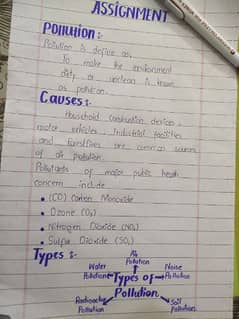 ASSIGNMENT
Pollution :-
Pollution is define as,
To make the environment
dirty or unclean is known
as pollution.
Causes :-
Household combustion devices,
motor vehicles Industrial facilities
and forestfires are common sources
of air pollution.
Pollutants of major public health
concern include
• (CO) Carbon Monoxide
• Ozone (O₃)
• Nitrogen Dioxide (NO₂)
• Sulfur Dioxide (SO₂)
Types :-
Air
Pollution
Water
Pollution
Noise
Pollution
Types of
Pollution
Radioactive
Pollution
Soil
Pollution